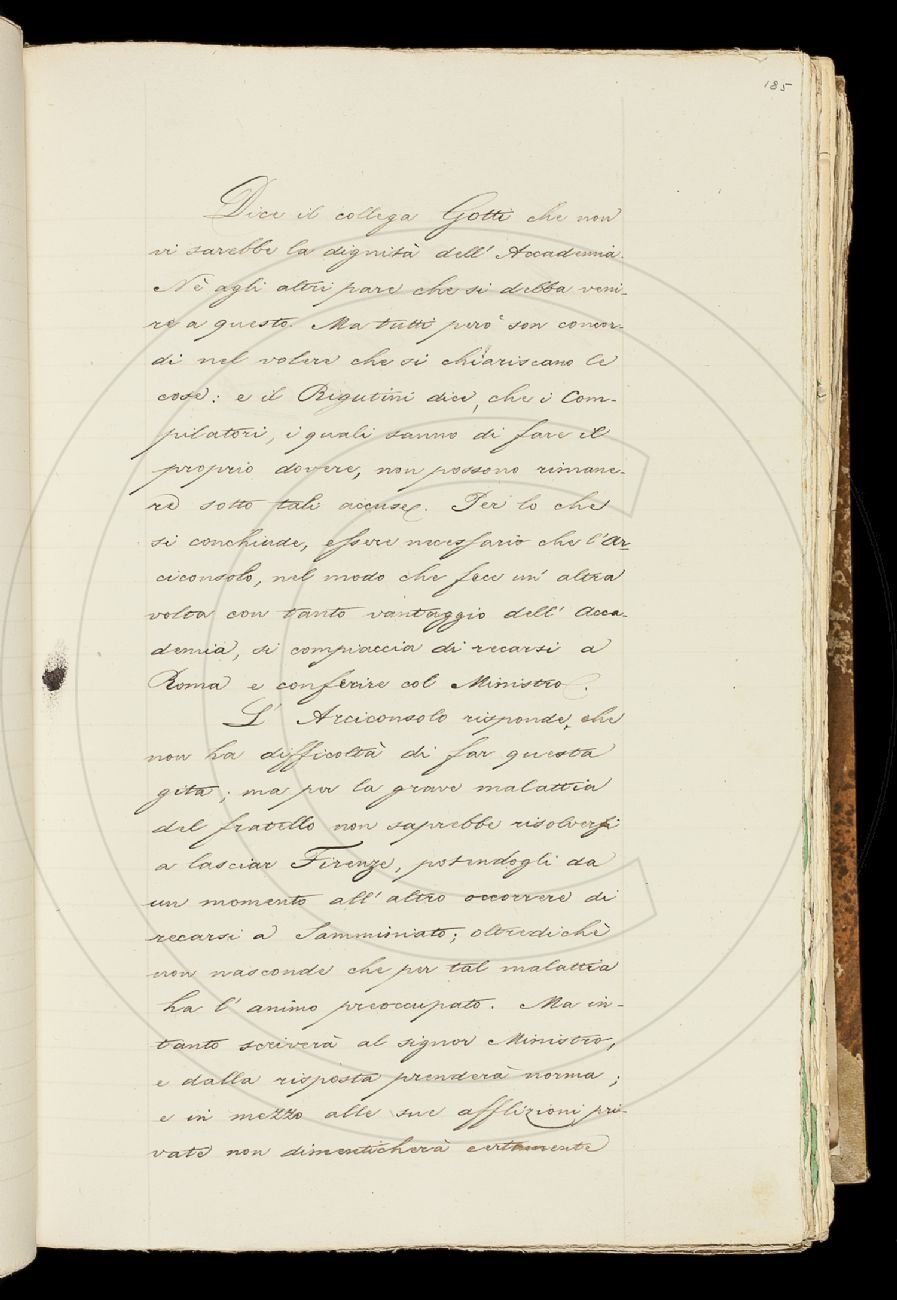 185
Dice il collega Gotti che non
vi sarebbe la dignità dell' Accademia.
Nè agli altri pare che si debba veni-
re a questo. Ma tutti però son concor-
di nel volere che si chiariscano le
cose: e il Rigutini dice, che i Com-
pilatori, i quali sanno di fare il
proprio dovere, non possono rimane-
re sotto tali accuse. Per lo che
si conchiude, essere necessario che l'Ar-
ciconsolo, nel modo che fece un' altra
volta con tanto vantaggio dell' Acca-
demia, si compiaccia di recarsi a
Roma e conferire col Ministro.
L' Arciconsolo risponde, che
non ha difficoltà di far questa
gita; ma per la grave malattia
del fratello non saprebbe risolversi
a lasciar Firenze, potendogli da
un momento all' altro occorrere di
recarsi a Samminiato; oltredichè
non nasconde che per tal malattia
ha l' animo preoccupato. Ma in-
tanto scriverà al signor Ministro,
e dalla risposta prenderà norma;
e in mezzo alle sue afflizioni pri-
vate non dimenticherà certamente